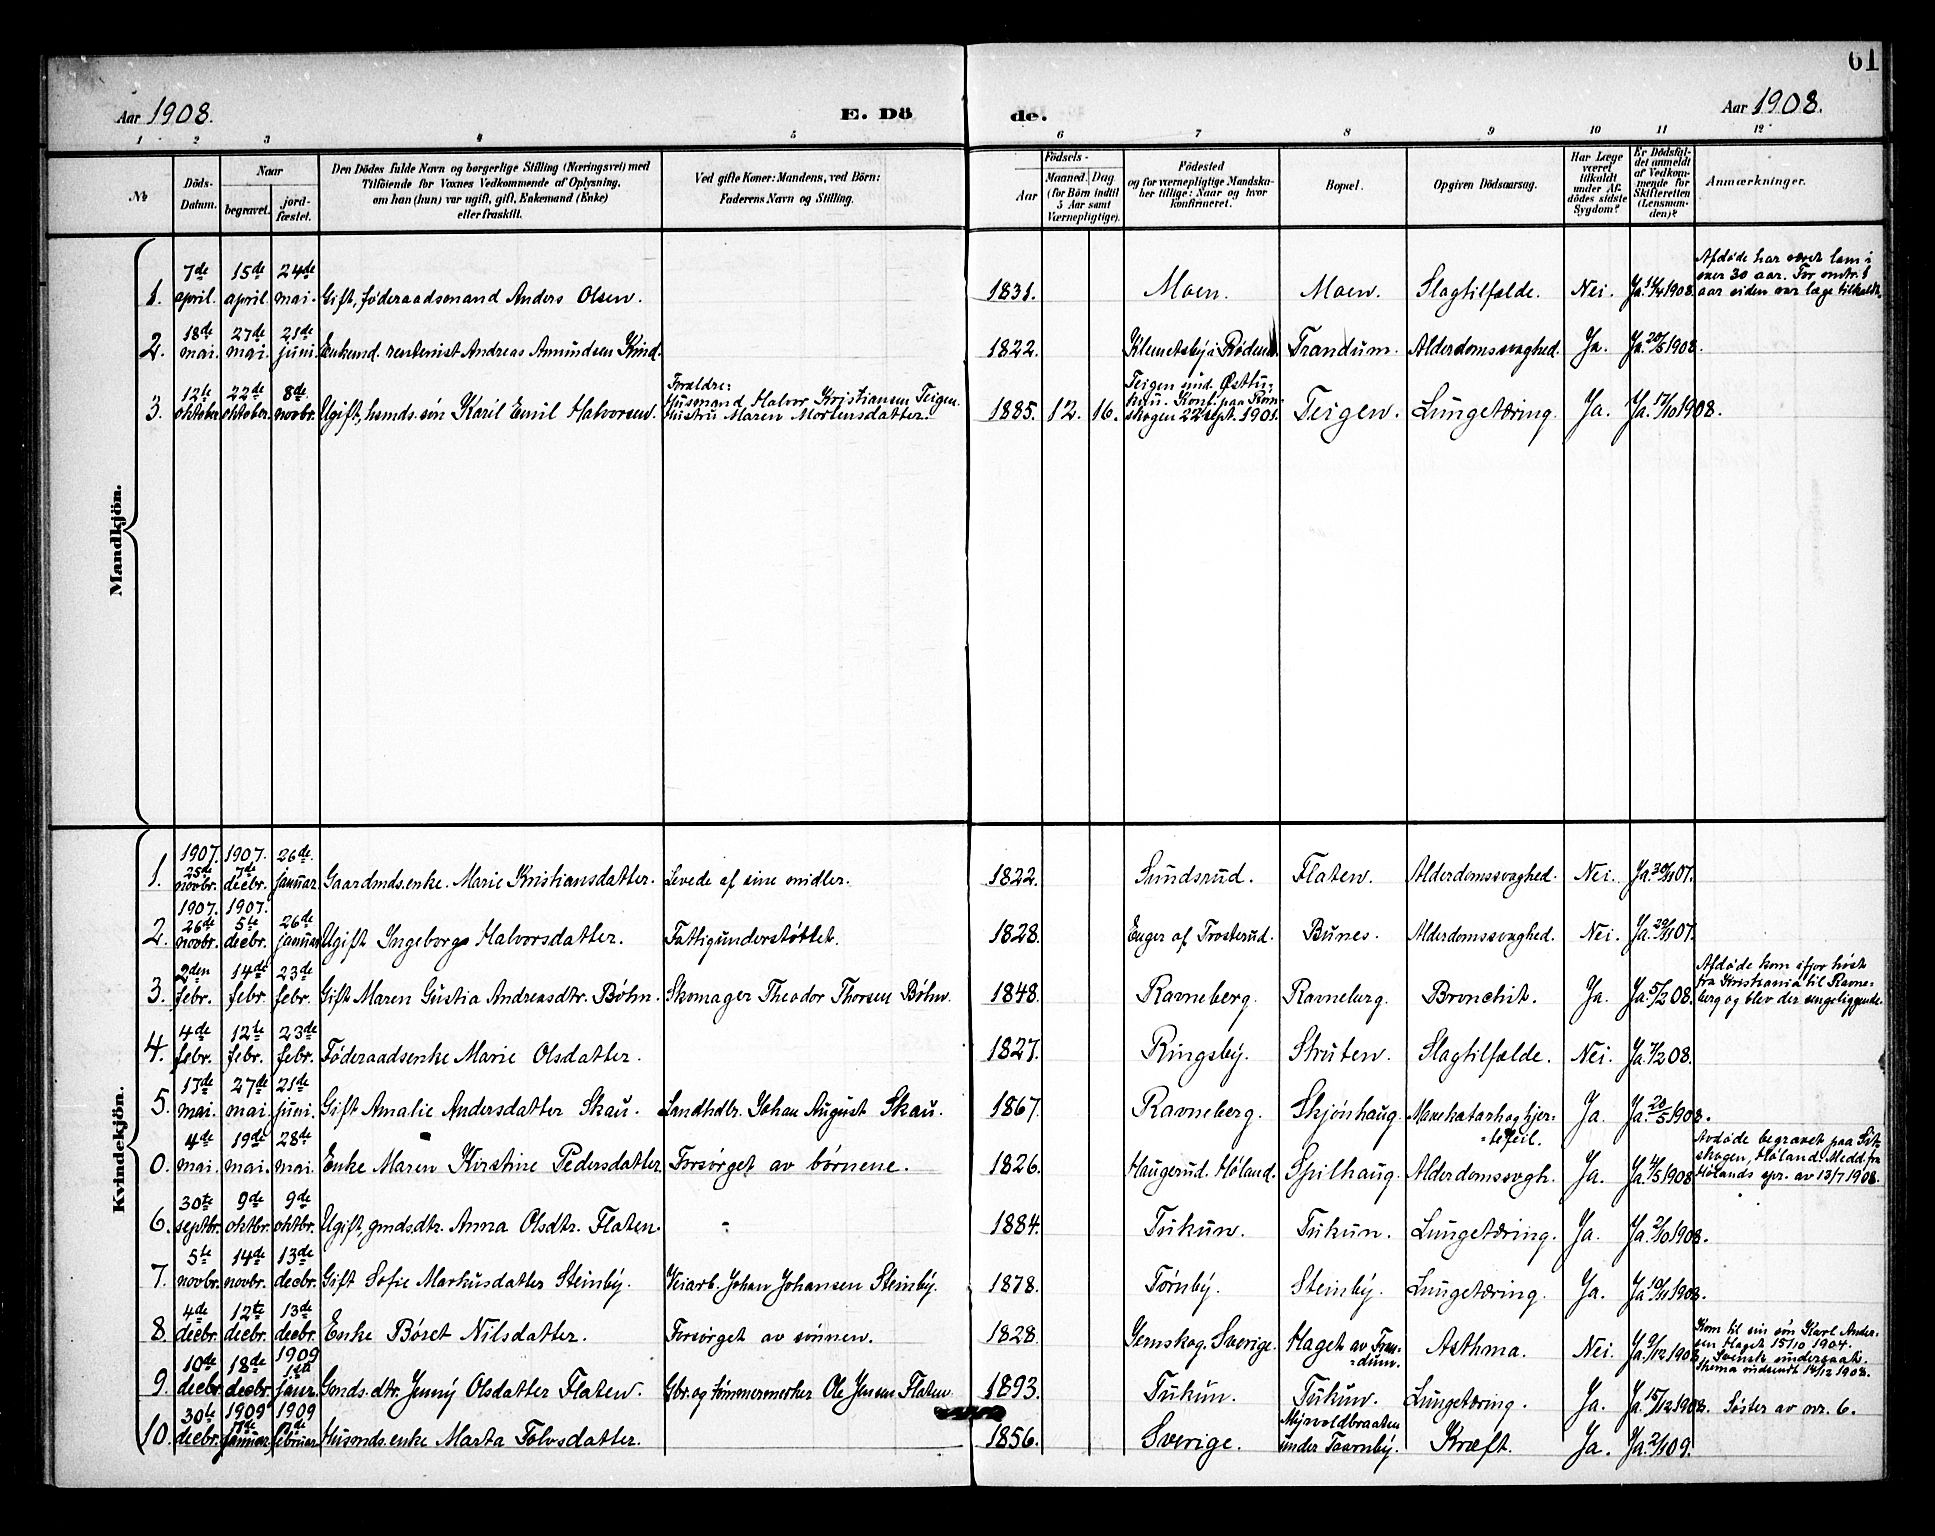 61
Aar 1908.
E. Dö
de.
Aar 1908.
1 2 3 4 5 6 7 8 9 10 11 12
№
Döds-
Datum.
Naar
begravet.
jord-
fæstet.
Den Dödes fulde Navn og borgerlige Stilling (Næringsvei) med
Tilföiende for Voxnes Vedkommende af Oplysning,
om han (hun) var ugift, gift, Enkemand (Enke)
eller fraskilt.
Ved gifte Koner: Mandens, ved Börn:
Faderens Navn og Stilling.
Födsels-
Aar
Maaned. Dag.
(for Börn indtil
5 Aar samt
Værnepligtige).
Födested
og for værnepligtige Mandska-
ber tillige: Naar og hvor
konfirmeret.
Bopæl.
Opgiven Dödsaarsag.
Har Læge
været
tilkaldt
under Af-
dödes sidste
Sygdom?
Er Dödsfal-
det anmeldt
af Vedkom-
mende for
Skifteretten
(Lensman-
den)?
Anmærkninger.
Mandkjön.
1. 7de april. 15de april 24de mai. Gift, føderaadsmand Anders Olsen. 1831. Moen. Moen. Slagtilfælde. Nei. Ja. 11/4 1908.
Afdøde har været lam i
over 30 aar. For omtr. 1
aar siden var læge tilkaldt.
2. 18de mai. 27de mai. 21de juni. Enkemd. rentenist Andreas Amundsen Kind. 1822. Klemetsby i Rødenes. Trandum. Alderdomssvaghed. Ja. Ja. 20/5 1908.
3. 12te oktober 22de oktober. 8de novbr. Ugift, hsmds. søn Karil Emil Halvorsen.
Forældre:
Husmand Halvor Kristiansen Teigen.
Hustru Maren Mortensdatter.
1885. 12. 16.
Teigen und. Østtu-
kun. Konf. paa Røm-
skogen 22 sept. 1901.
Teigen. Lungetæring. Ja. Ja. 17/10 1908.
Kvindekjön.
1. 1907. 25de novbr. 1907. 7de decbr. 26de januar Gaardmds.enke. Marie Kristiansdatter. Levede af sine midler. 1822. Sundsrud. Flaten. Alderdomssvaghed. Nei. Ja. 30/11 07.
2. 1907. 26de novbr. 1907. 5te decbr. 26de januar Ugift Ingeborg Halvorsdatter. Fattigunderstøttet. 1828. Enger af Trosterud. Bunes. Alderdomssvaghed. Nei. Ja. 29/11 07.
3. 2den febr. 14de febr 23de febr. Gift Maren Gustia Andreasdtr. Bøhn. Skomager Theodor Thorsen Bøhn. 1848. Ravneberg. Ravneberg. Bronchit. Ja. Ja. 5/2 08.
Afdøde kom ifjor høst
fra Kristiania til Ravne-
berg og blev der sengeliggende.
4. 4de febr. 12te febr. 23de febr. Føderaadsenke Marie Olsdatter. 1827. Ringsby. Struten. Slagtilfælde. Nei. Ja. 7/2 08.
5. 17de mai. 27de mai. 21de juni. Gift Amalie Andersdatter Skau. Landhdlr. Johan August Skau. 1867. Ravneberg. Skjønhaug. Mavekatarh og hjer-
tefeil. Ja. Ja. 20/5 1908.
0. 4de mai. 19de mai. 28de mai. Enke Maren Kirstine Pedersdatter. Forsørget av børnene. 1826. Haugerud. Høland. Spilhaug. Alderdomssvgh. Ja. Ja. 4/5 1908
Avdøde begravet paa Sit-
skogen, Høland. Medd. fra
Hølands spr. av 13/7 1908.
6. 30te septbr. 9de oktbr. 9de oktbr. Ugift, gmds.dtr. Anna Olsdtr. Flaten. 1884. Tukun. Tukun. Lungetæring. Ja. Ja. 2/10 1908.
7. 5te novbr. 14de novbr. 13de decbr. Gift Sofie Markusdatter Steinby. Veiarb. Johan Johansen Steinby. 1878. Tørnby. Steinby. Lungetæring. Ja. Ja 10/11 1908.
8. 4de decbr. 12te decbr. 13de decbr. Enke Børet Nilsdatter. Forsørget av sønnen. 1828. Jemskog. Sverige. Haget av Tran-
dum. Asthma. Nei. Ja. 9/12 1908.
Kom til sin søn Karl Ander-
sen Haget 15/10 1904.
Svensk undersaat.
Skema indsendt 14/12 1908.
9. 10de decbr. 18de decbr. 1909 1ste januar. Gmds.dtr. Jenny Olsdatter Flaten. Gbr. og tømmermerker Ole Jensen Flaten 1893. Tukun. Tukun. Lungetæring. Ja. Ja. 15/12 1908. Søster av nr. 6.
10. 30te decbr. 1909 7de januar. 1909 7de februar Husmds.enke Marta Tolvsdatter. 1856. Sverige. Myrvoldbraaten
under Taarnby. Kræft. Ja. Ja. 2/1 09.